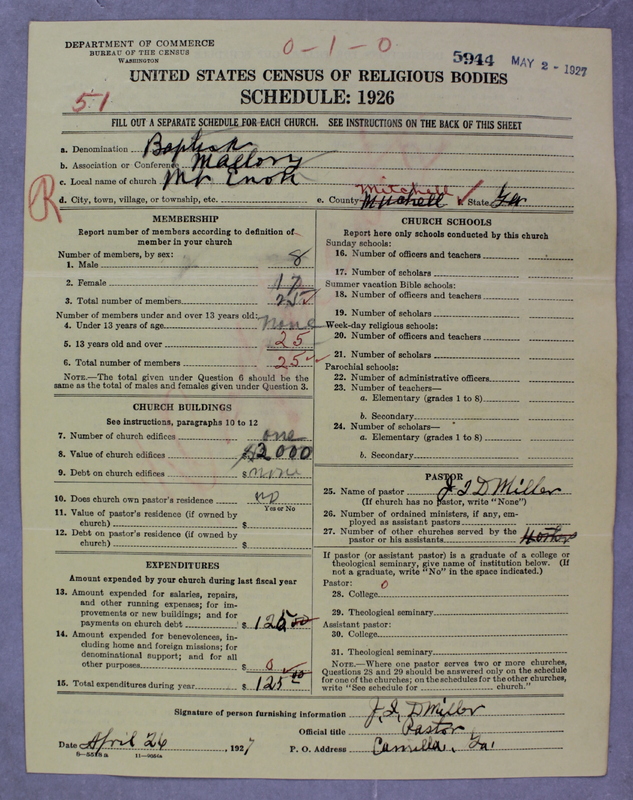 DEPARTMENT OF COMMERCE
BUREAU OF THE CENSUS
WASHINGTON
0-1-0
5944 MAY 2 - 1927
UNITED STATES CENSUS OF RELIGIOUS BODIES
51
SCHEDULE: 1926
FILL OUT A SEPARATE SCHEDULE FOR EACH CHURCH. SEE INSTRUCTIONS ON THE BACK OF THIS SHEET
a. Denomination Baptist
b. Association or Conference Mallory
c. Local name of church Mt Enok
R
d. City, town, village, or township, etc. e. County Mitchell Mitchell State Ga
MEMBERSHIP
Report number of members according to definition of
member in your church
Number of members, by sex:
1. Male 8
2. Female 17
3. Total number of members 25
Number of members under and over 13 years old:
4. Under 13 years of age none
5. 13 years old and over 25
6. Total number of members 25
NOTE.—The total given under Question 6 should be the
same as the total of males and females given under Question 3.
CHURCH BUILDINGS
See instructions, paragraphs 10 to 12
7. Number of church edifices one
8. Value of church edifices $2000
9. Debt on church edifices $ none
10. Does church own pastor's residence no
Yes or No
11. Value of pastor's residence (if owned by
church) $
12. Debt on pastor's residence (if owned by
church) $
EXPENDITURES
Amount expended by your church during last fiscal year
13. Amount expended for salaries, repairs,
and other running expenses; for im-
provements or new buildings; and for
payments on church debt $ 125 00
14. Amount expended for benevolences, in-
cluding home and foreign missions; for
denominational support; and for all
other purposes $ 0
15. Total expenditures during year $ 125 00
CHURCH SCHOOLS
Report here only schools conducted by this church
Sunday schools:
16. Number of officers and teachers
17. Number of scholars
Summer vacation Bible schools:
18. Number of officers and teachers
19. Number of scholars
Week-day religious schools:
20. Number of officers and teachers
21. Number of scholars
Parochial schools:
22. Number of administrative officers
23. Number of teachers—
a. Elementary (grades 1 to 8)
b. Secondary
24. Number of scholars—
a. Elementary (grades 1 to 8)
b. Secondary
PASTOR
25. Name of pastor J I D Miller
(If church has no pastor, write "None")
26. Number of ordained ministers, if any, em-
ployed as assistant pastors
27. Number of other churches served by the
pastor or his assistants
If pastor (or assistant pastor) is a graduate of a college or
theological seminary, give name of institution below. (If
not a graduate, write "No" in the space indicated.)
Pastor: 0
28. College
29. Theological seminary
Assistant pastor:
30. College
31. Theological seminary
NOTE.—Where one pastor serves two or more churches,
Questions 28 and 29 should be answered only on the schedule
for one of the churches; on the schedules for the other churches,
write "See schedule for church."
Signature of person furnishing information J. I. D Miller
Official title Pastor
Date April 26, 1927 P. O. Address Camilla, Ga.